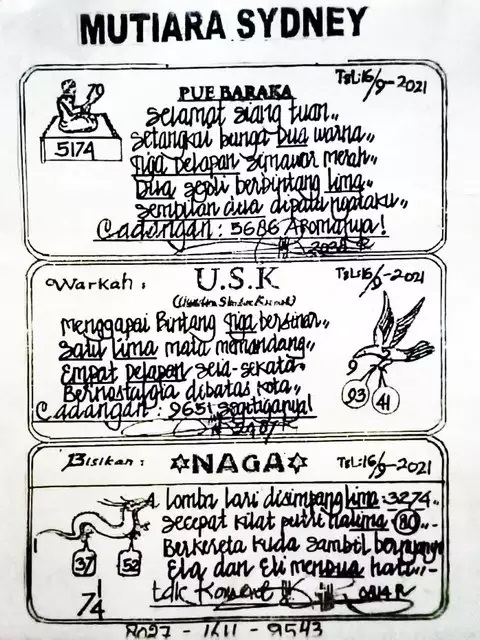 MUTIARA SYDNEY
PUE BARAKA
TGL:16/9-2021
79
5174
Selamat siang tuan,,
Setangkai bunga Dua warna,,
Tiga Delapan Simawar merah,,
Dua sejoli berbintang lima,,
Sembilan dua dipatu
Cadangan : 5686 Aromanya!
Warkah :
U.S.K
TGL:16/9-2021
Menggapai Bintang Tiga bersinar,,
Satu Lima mata memandang,,
Empat Delapan seia-sekata,,
Bernostalgia dibatas kota,,
Cadangan : 9651 segitiganya!
9
93
41
Bisikan :
NAGA
TGL:16/9-2021
Lomba lari disimpang lima :3274,,
Secepat kilat putri
80
Berkereta kuda sambil bernyanyi
Ela dan Eli mendua hati,,-
tdk
37
52
74
8027 - 1611 - 9543